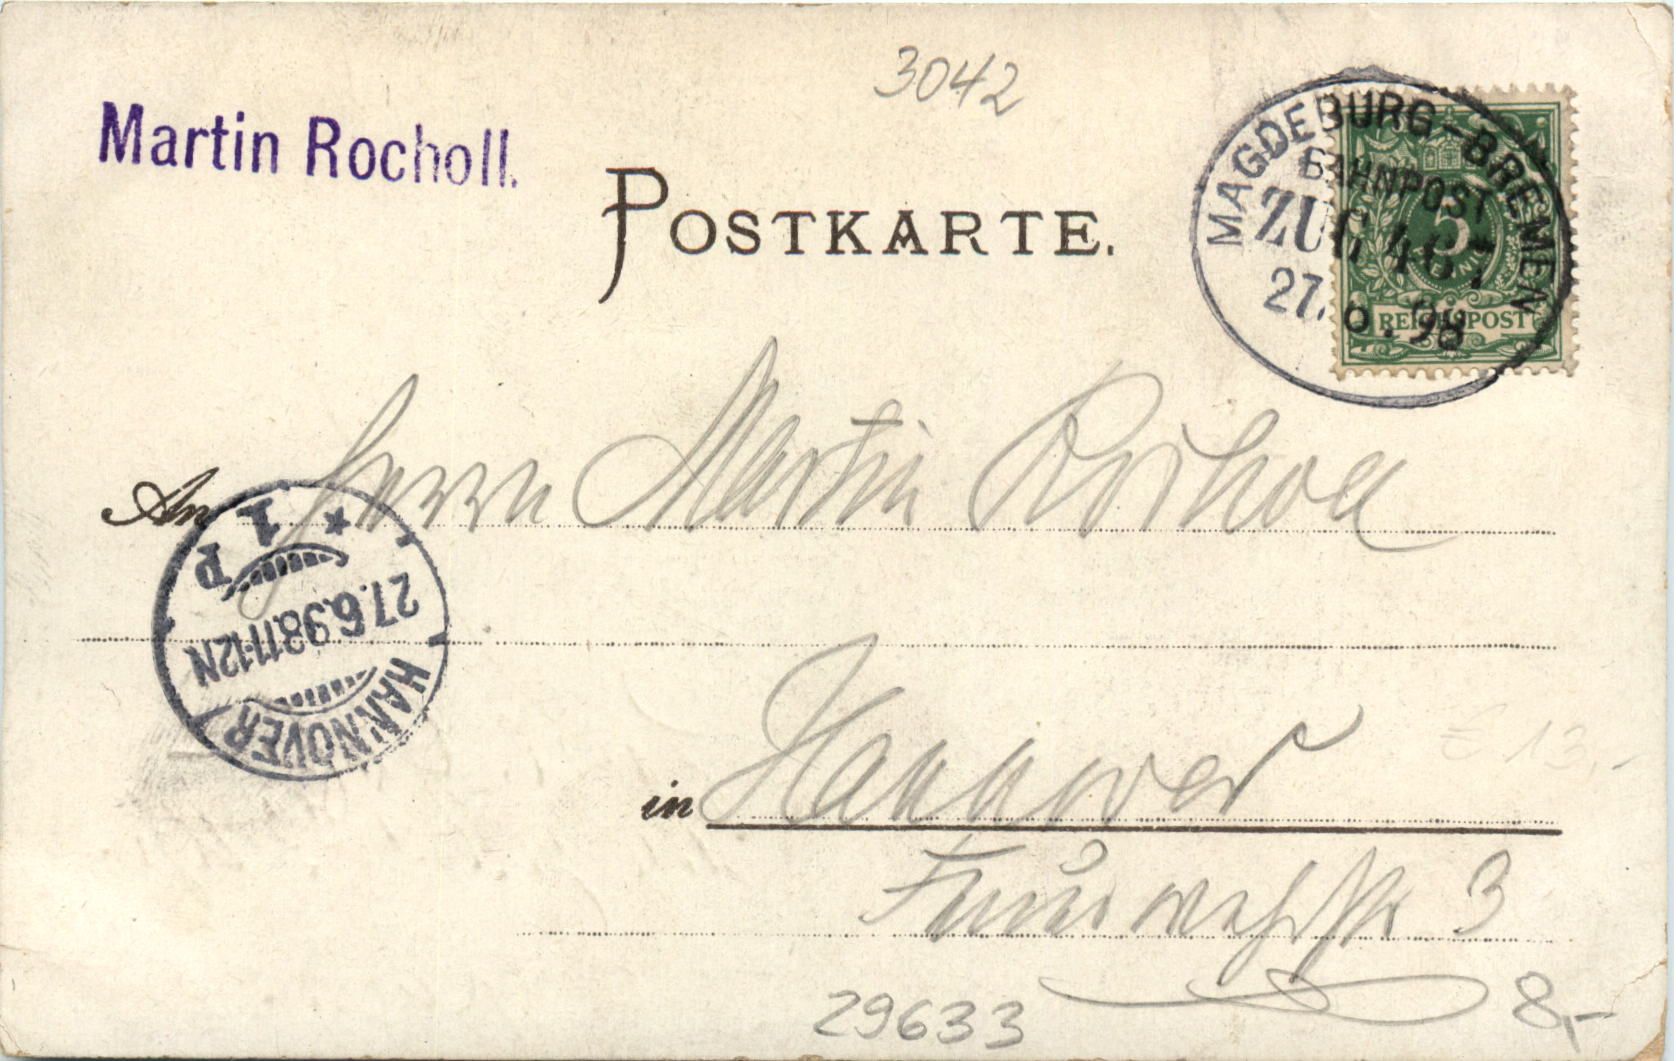 3042
Martin Rocholl.
POSTKARTE.
MAGDEBURG-BREMEN
BAHNPOST
ZUG
27. 98
5
PFENNIG
REICHSPOST
An Herrn Martin Rocholl
1
P
27.6.98.11-12N
HANNOVER
in Hannover
Feuerwehrstr 3
€ 13,-
29633
8,-